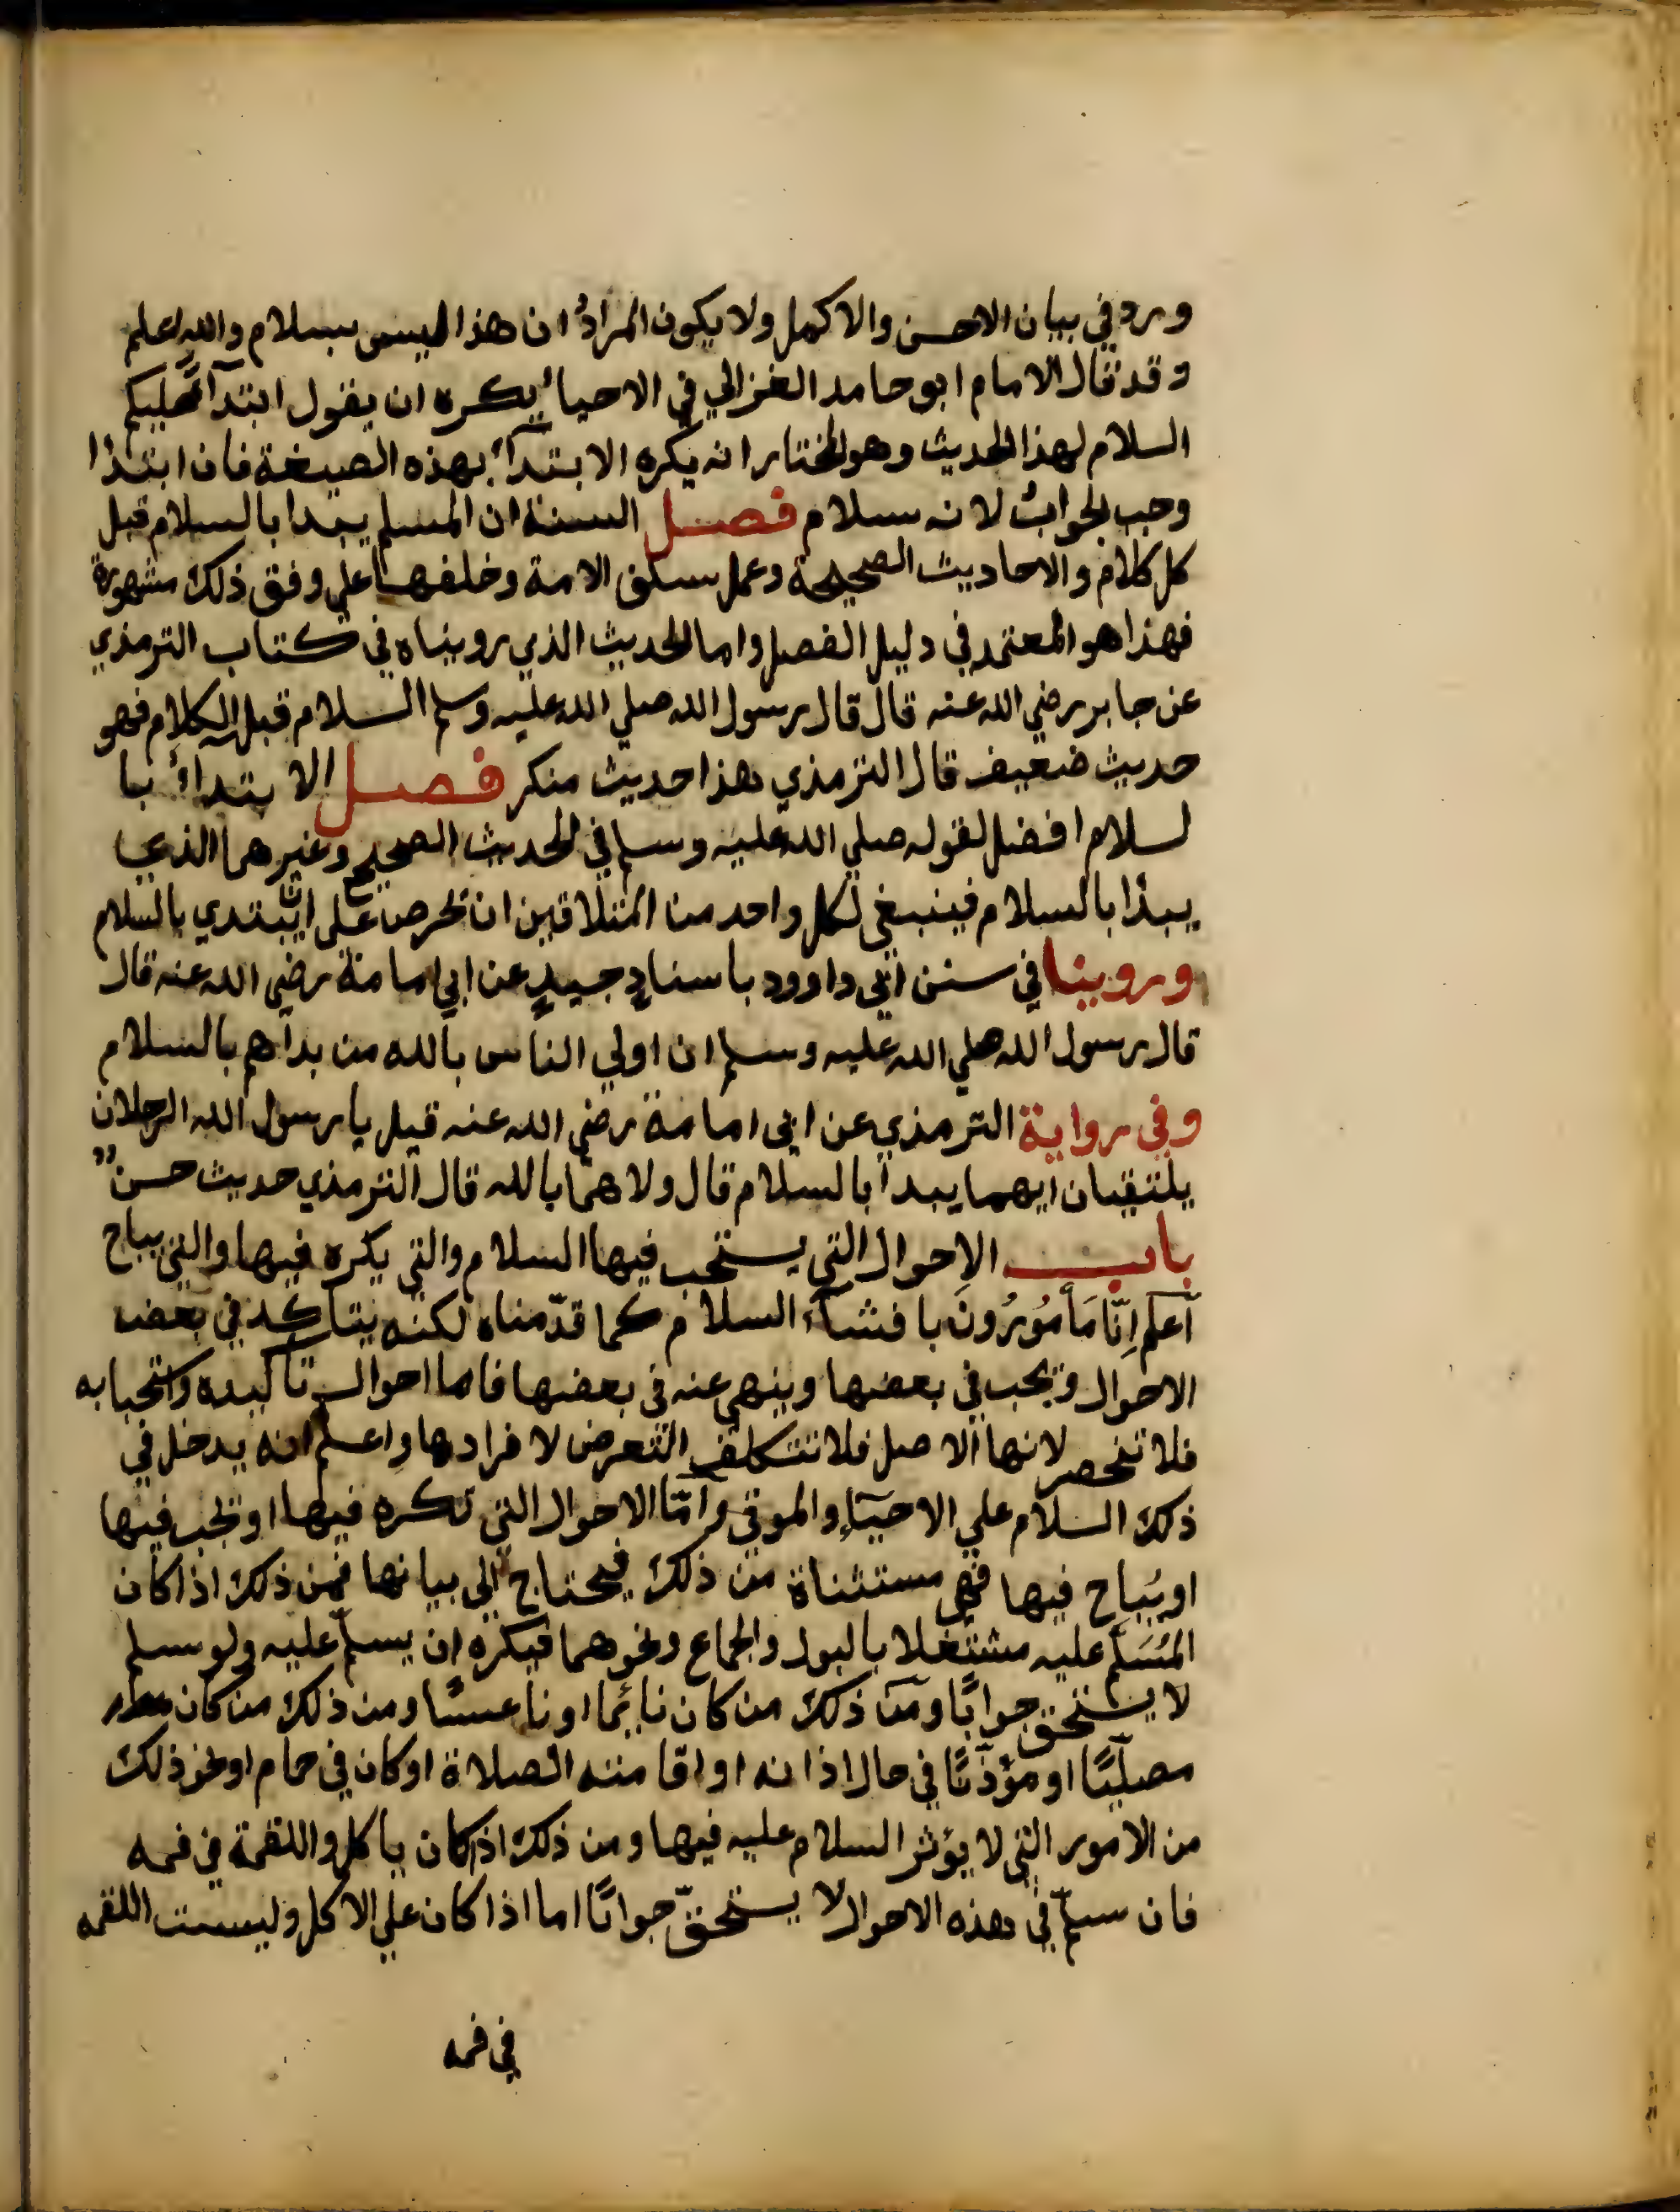 ورد في بيان الاحسن والاكمل ولا يكون المرادُ ان هذا ليس بسلام والله اعلم
وقد قال الامام ابو حامد الغزالي في الاحياءِ يكره ان يقول ابتدآءً عليكم
السلام لهذا الحديث وهو المختار انه يكره الابتدآء بهذه الصيغة فان ابتدا
وجب الجوابُ لانه سلام فصل السنة ان المسلم يبدا بالسلام قبل
كل كلام والاحاديث الصحيحة وعمل سلف الامة وخلفها علي وفق ذلك مشهورة
فهذا هو المعتمد في دليل الفصل واما الحديث الذي رويناه في كتاب الترمذي
عن جابر رضي الله عنه قال قال رسول الله صلي الله عليه وسلم السلام قبل الكلام فهو
حديث ضعيف قال الترمذي هذا حديث منكر فصل الابتداءُ با
لسلام افضل لقوله صلي الله عليه وسلم في الحديث الصحيح وغيرهما الذي
يبدأ بالسلام فينبغي لكل واحد من المتلاقين ان يحرص على ان يبتدي بالسلام
وروينا في سنن ابي داوود باسنادٍ جيدٍ عن ابي امامة رضي الله عنه قال
قال رسول الله صلي الله عليه وسلم ان اولي الناس بالله من بدأهم بالسلام
وفي رواية الترمذي عن ابي امامة رضي الله عنه قيل يا رسول الله الرجلان
يلتقيان ايهما يبدأ بالسلام قال ولاهما بالله قال الترمذي حديث حسنٌ
باب الاحوال التي يستحب فيها السلام والتي يكره فيها والتي يباح
أعلم اِنّا مَأمُورُونَ بافشآء السلام كما قدّمناه لكنه يتاكد في بعض
الاحوال ويجب في بعضها وينهي عنه في بعضها فاما احوال تاكيده واستحبابه
فلا تنحصر لانها الاصل فلا نتكلف التعرض لافرادها واعلم انه يدخل في
ذلك السلام علي الاحيآءِ والموتي وأمّا الاحوال التي تكره فيها او تجب فيها
او يُباح فيها فهي مستثناة من ذلك فيحتاج الي بيانها فمن ذلك اذا كان
المُسَلَّم عليه مشتغلا بالبول والجماع ونحوهما فيكره ان يسلّم عليه ولو سلم
لا يستحق جوابًا ومن ذلك من كان نائما او ناعسًا ومن ذلك من كان
مصلّيًا او مؤذّنًا في حال اذانه او اقامته الصلاة او كان في حمام او نحو ذلك
من الامور التي لا يؤثر السلام عليه فيها ومن ذلك اذا كان ياكل واللقمة في فمه
فان سلّم في هذه الاحوال لا يستحقّ جوابًا اما اذا كان علي الاكل وليست اللقمه
في فمه